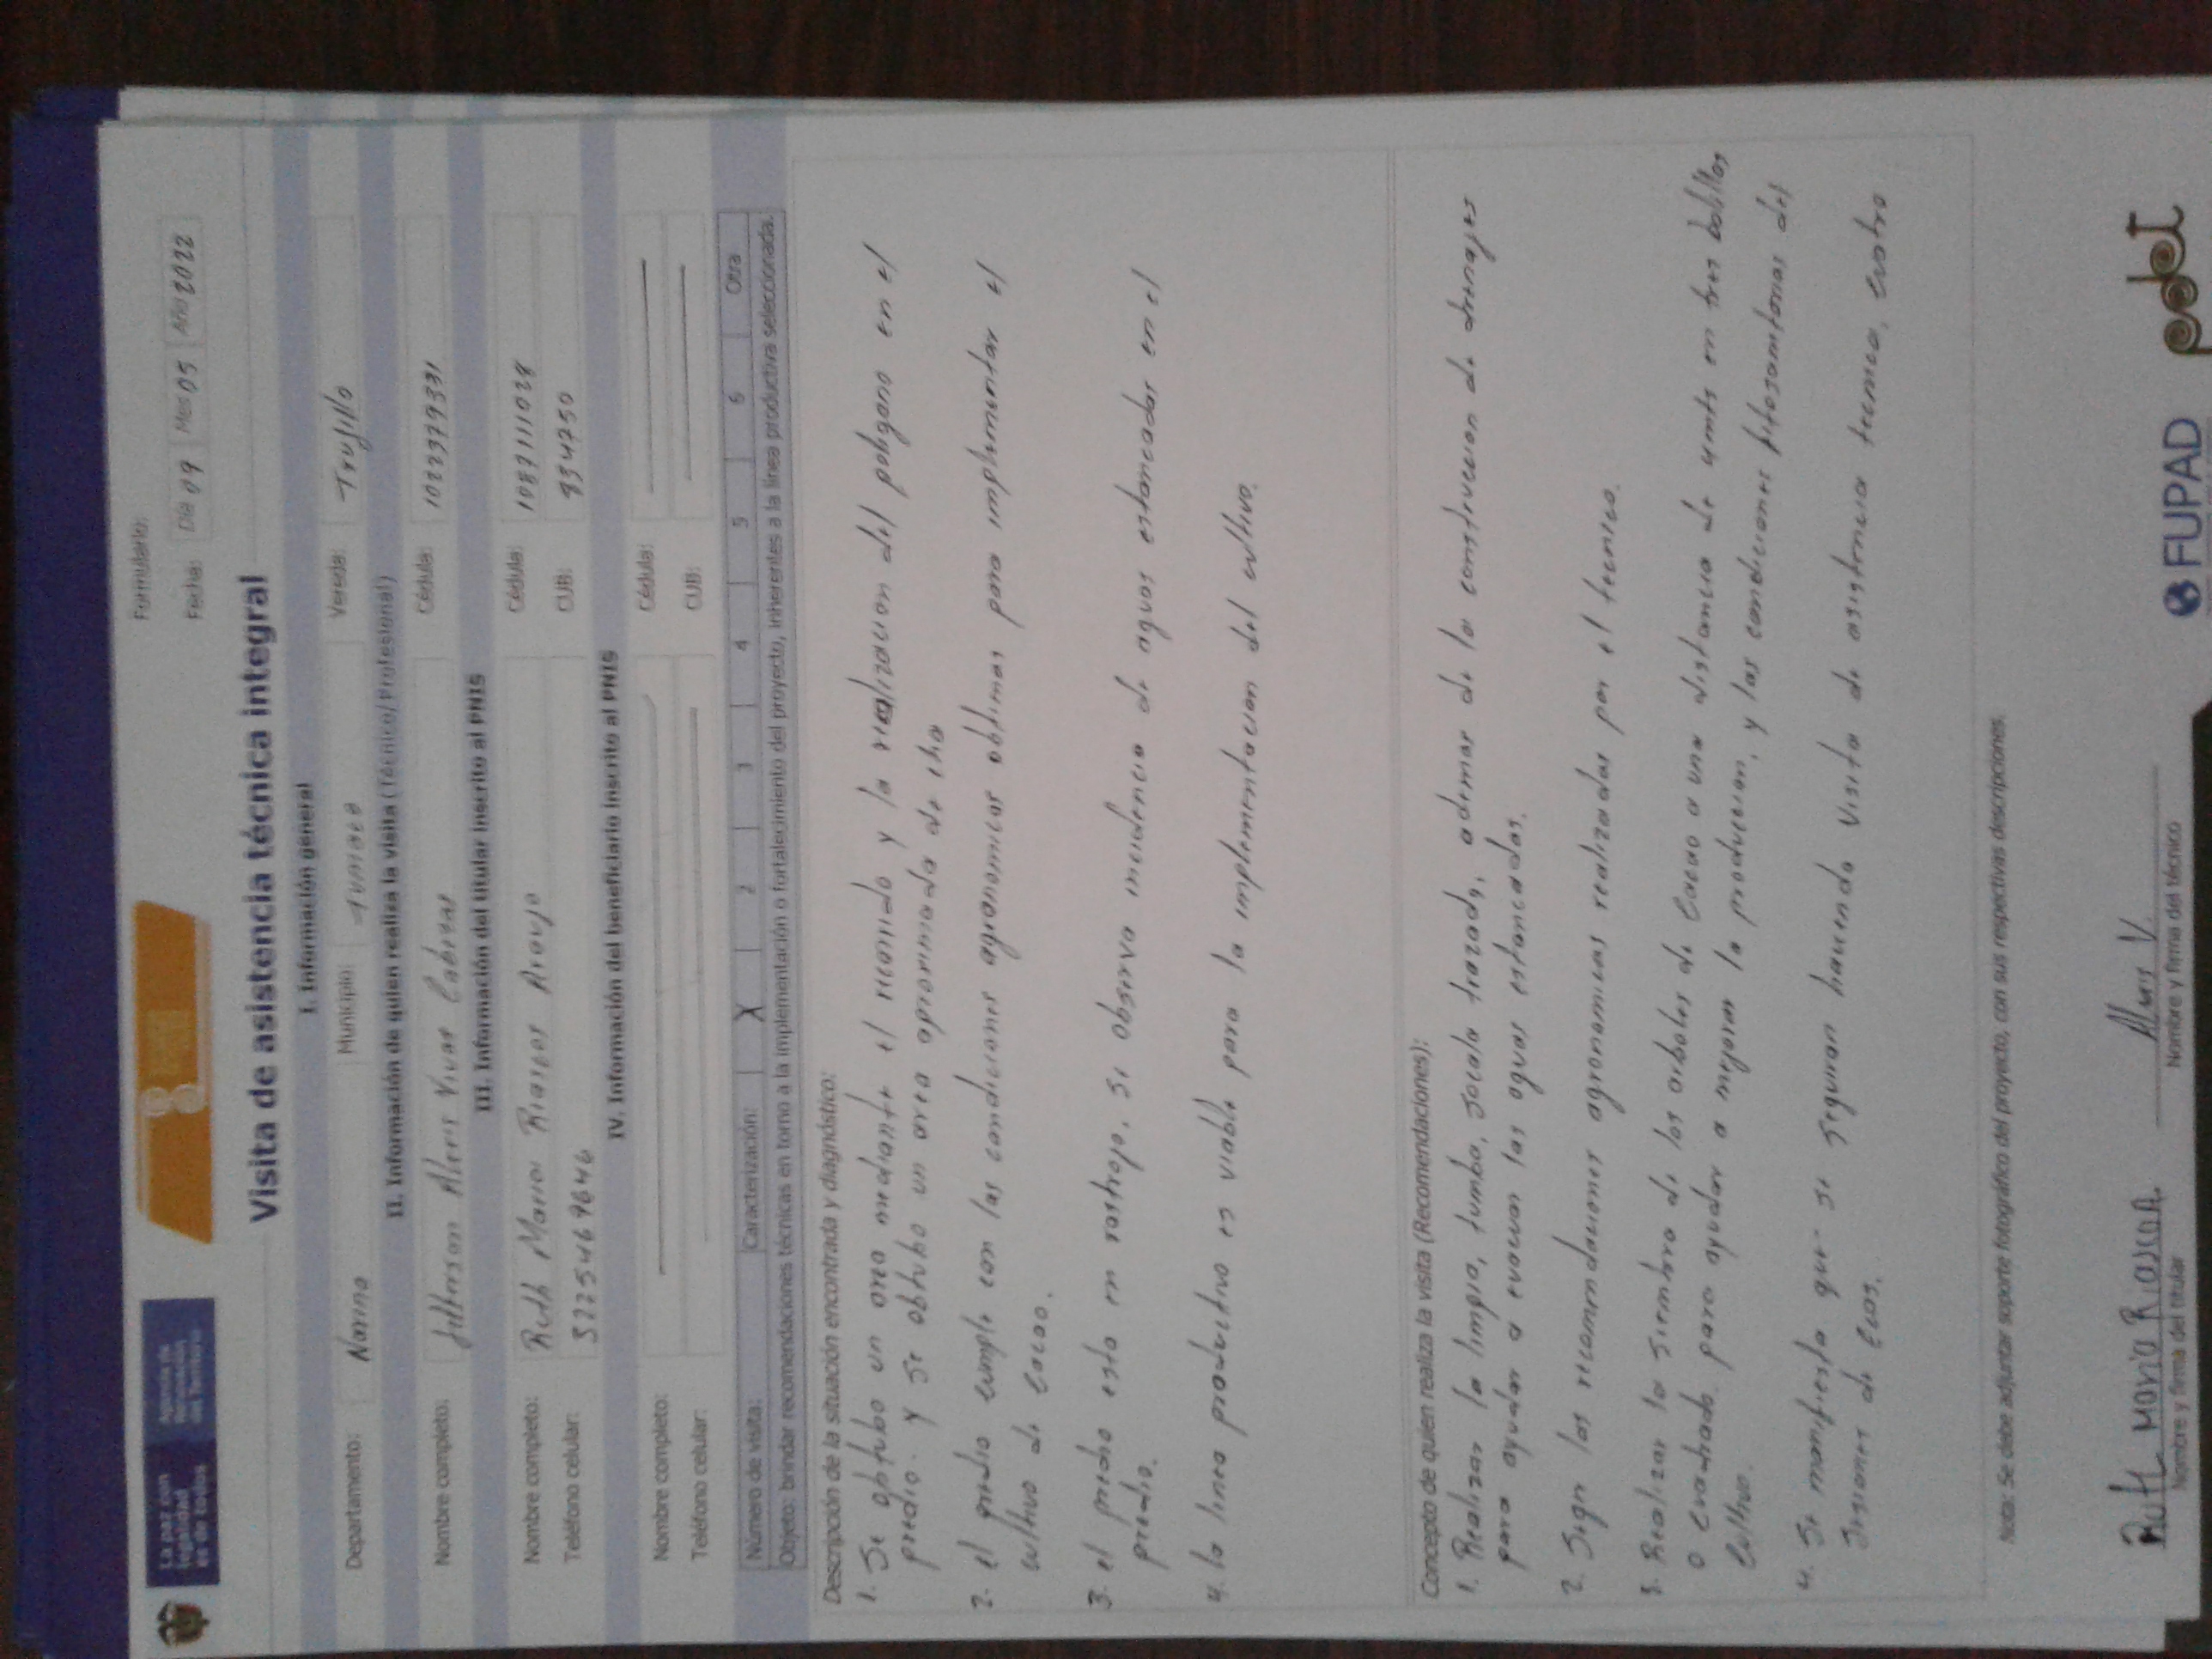 La paz con
legalidad
es de todos
Agencia de
Renovación
del Territorio
Formulario:
Fecha: Día 09 Mes 05 Año 2022
Visita de asistencia técnica integral
I. Información general
Departamento: Narino Municipio: Tumaco Vereda: Trujillo
II. Información de quien realiza la visita (Técnico/Profesional)
Nombre completo: Alexis Vivas Cabezas Cédula:
III. Información del titular inscrito al PNIS
Nombre completo: Ruth Maria Riascos Araujo Cédula: 1087111028
Teléfono celular: 3225469646 CUB:
IV. Información del beneficiario inscrito al PNIS
Nombre completo: Cédula:
Teléfono celular: CUB:
Número de visita: Caracterización: X 2 3 4 5 6 Otra
Objeto: brindar recomendaciones técnicas en torno a la implementación o fortalecimiento del proyecto, inherentes a la línea productiva seleccionada.
Descripción de la situación encontrada y diagnóstico:
1. Se obtubo un area mediante el recorrido y la realizacion del poligono en el
predio. y se obtubo un area aproximada de 1ha
2. el predio cumple con las condiciones agronomicas obtimas para implementar el
cultivo de cacao.
3. el predio esta en rastrojo, se observa incidencia de aguas estancadas en el
predio.
4. la linea productiva es viable para la implementacion del cultivo.
Concepto de quien realiza la visita (Recomendaciones):
1. Realizar la limpia, tumba, socala trazado, ademas de la construccion de drenajes
para ayudar a evacuar las aguas estancadas.
2. Segir las recomendaciones agronomicas realizadas por el tecnico.
3. Realizar la siembra de los arboles de Cacao a una distancia de 4mts en tres bolillos
o cuadrado para ayudar a mejorar la produccion, y las condiciones fitosanitarias del
Cultivo.
4. Se manifiesta que se seguiran haciendo visita de asistencia tecnica, cuatro
sesiones de ECAS.
Nota: Se debe adjuntar soporte fotográfico del proyecto, con sus respectivas descripciones.
Ruth Maria Riascos A. Alexis V.
Nombre y firma del titular Nombre y firma del técnico
FUPAD pdet